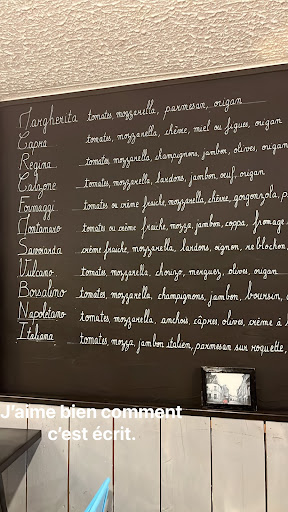 Margherita tomates, mozzarella, parmesan, origan
Capra tomates, mozzarella, chèvre, miel ou figues, origan
Regina tomates, mozzarella, champignons, jambon, olives, origan
Calzone tomates, mozzarella, lardons, jambon, œuf, origan
Formaggi tomates ou crème fraîche, mozzarella, chèvre, gorgonzola, p
Montanaro tomates ou crème fraîche, mozza, jambon, coppa, fromage
Savoiarda crème fraîche, mozzarella, lardons, oignon, reblochon,
Vulcano tomates, mozzarella, chorizo, merguez, olives, origan
Borsalino tomates, mozzarella, champignons, jambon, boursin,
Napoletano tomates, mozzarella, anchois, câpres, olives, crème à l
Italiana tomates, mozza, jambon italien, parmesan sur roquette,
J'aime bien comment
c'est écrit.